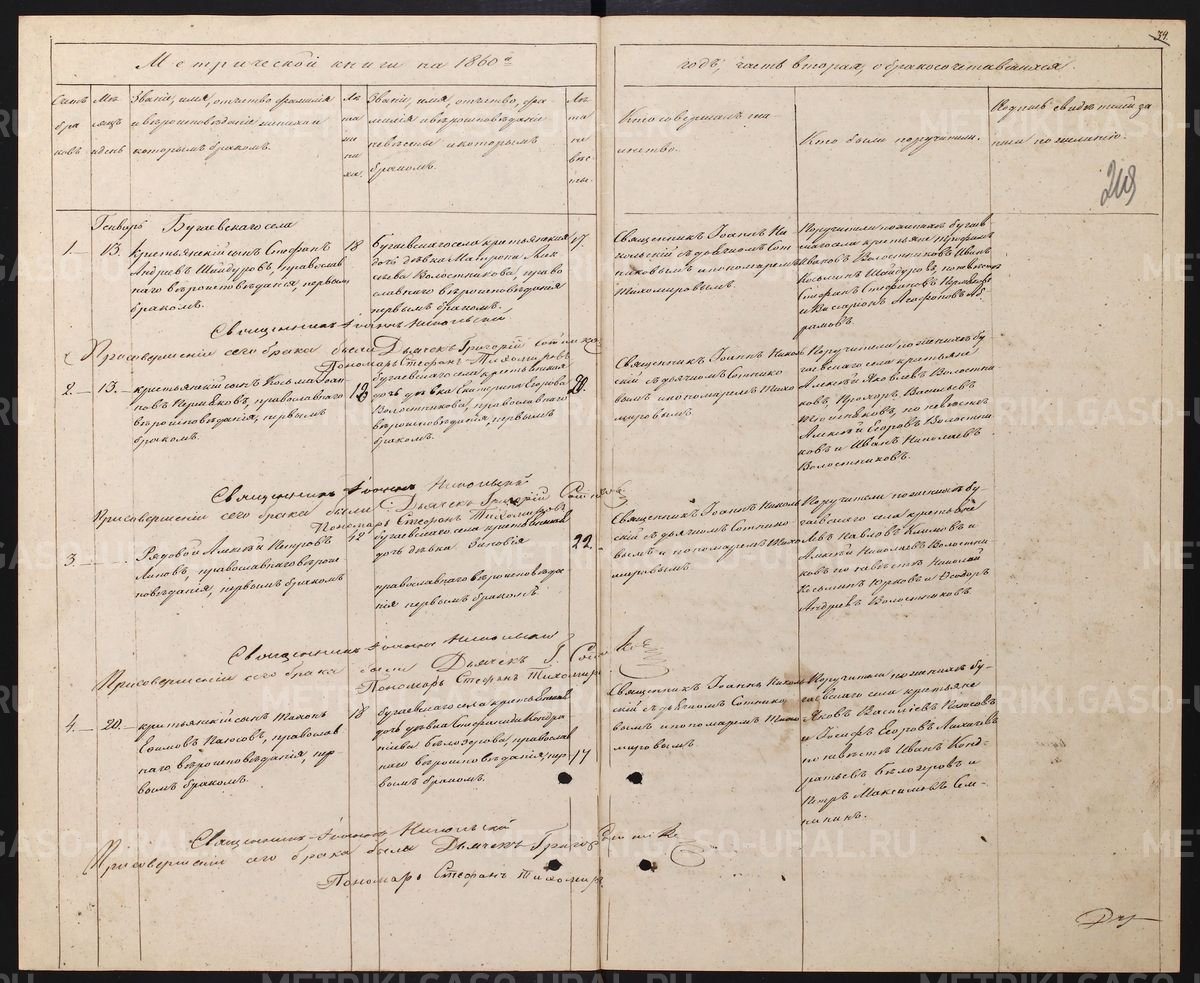 34.
Метрической книги на 1860й
годъ, часть вторая, о бракосочетавшихся.
Счетъ браковъ
Мѣсяцъ и день
Званіе, имя, отчество фамилія
и вѣроисповѣданіе жениха и
которымъ бракомъ.
Лѣта жениха.
Званіе, имя, отчество, фа-
милія и вѣроисповѣданіе
невѣсты и которымъ
бракомъ.
Лѣта невѣсты.
Кто совершалъ та-
инство.
Кто были поручители.
Подпись свидѣтелей за-
писи по желанію.
Генварь Бугаевскаго села
1.
13.
крестьянскій сынъ Стефанъ
Андреевъ Шайдуровъ, православ
наго вѣроисповѣданія, первымъ
бракомъ.
18
Бугаевскаго села крестьянская
дочь дѣвка Матрона Алек
сѣева Волостникова, право
славнаго вѣроисповѣданія
первымъ бракомъ.
17.
Священникъ Іоаннъ Ни
кольскій съ дьячкомъ Сот
никовымъ и пономаремъ
Тихомировымъ.
Поручители по женихѣ бугаев
скаго села крестьяне Трофимъ
Ивановъ Волостниковъ Иванъ
Косминъ Шайдуровъ, по невѣстѣ
Стефанъ Стефановъ
и Виссаріонъ Агафоновъ Аб
рамовъ.
Священникъ Іоаннъ Никольскій
При совершеніи сего брака были Дьячекъ Григорій Сотников
Пономарь Стефанъ Тихомировъ
2.
13.
крестьянскій сынъ Косьма Іоан
новъ Пермяковъ, православнаго
вѣроисповѣданія, первымъ
бракомъ.
бугаевскаго села крестьянская
дочь дѣвка Екатерина Егорова
Волостникова, православнаго
вѣроисповѣданія, первымъ
бракомъ.
20.
Священникъ Іоаннъ Николь
скій съ дьячкомъ Сотнико
вымъ и пономаремъ Тихо
мировымъ.
Поручители по женихѣ бу
гаевскаго села крестьяне
Алексѣй Яковлевъ Волостни
ковъ, Прохоръ Васильевъ
по невѣстѣ
Алексѣй Егоровъ Волостни
ковъ и Иванъ Николаевъ
Волостниковъ.
Священникъ Іоаннъ Никольскій
При совершеніи сего брака были Дьячекъ Григорій Сотников
Пономарь Стефанъ Тихомировъ
3.
Рядовой Алексѣй Петровъ
православнаго вѣроис
повѣданія, первымъ бракомъ
42
бугаевскаго села крестьянская
дочь дѣвка Зиновія
православнаго вѣроисповѣда
нія первымъ бракомъ
22.
Священникъ Іоаннъ Николь
скій съ дьячкомъ Сотнико
вымъ и пономаремъ Тихо
мировымъ.
Поручители по женихѣ бу-
гаевскаго села крестьяне
Левъ Павловъ Климовъ и
Алексѣй Николаевъ Волостни
ковъ по невѣстѣ Николай
Косьминъ Юрковъ и Ѳеодоръ
Андреевъ Волостниковъ
Священникъ Іоаннъ Никольскій
При совершеніи сего брака были Дьячекъ Г. Сотников
Пономарь Стефанъ Тихомир
4.
20.
крестьянскій сынъ Тихонъ
Ефимовъ Палюсовъ, православ
наго вѣроисповѣданія, пер
вымъ бракомъ.
18
бугаевскаго села крестьянская
дочь дѣвка Стефанида Кондра
тіева Бѣлозерова, православ
наго вѣроисповѣданія, пер
вымъ бракомъ.
17
Священникъ Іоаннъ Николь
скій съ дьячкомъ Сотнико
вымъ и пономаремъ Тихо
мировымъ.
Поручители по женихѣ бу-
гаевскаго села крестьяне
Яковъ Васильевъ Палюсовъ
и Іосифъ Егоровъ Лихачевъ
по невѣстѣ Иванъ Конд-
ратьевъ Бѣлозеровъ и
Петръ Максимовъ Сем-
нинъ.
Священникъ Іоаннъ Никольскій
При совершеніи сего брака были Дьячекъ Григор Сотников
Пономарь Стефанъ Тихомир
METRIKI.GASO-URAL.RU